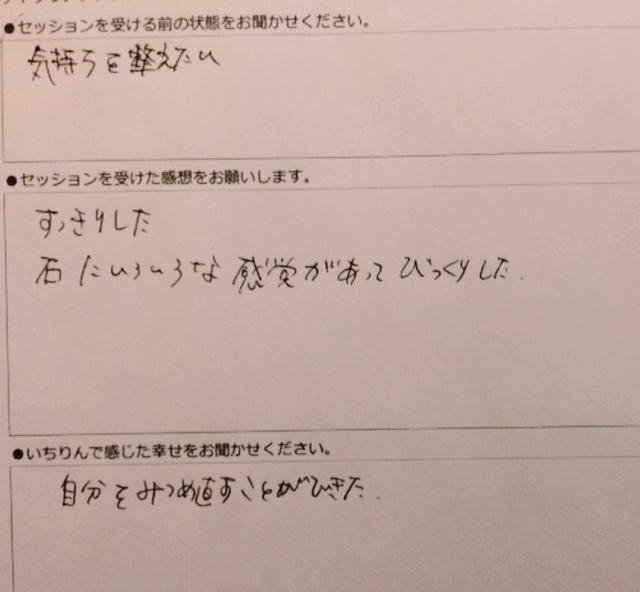 ●セッションを受ける前の状態をお聞かせください。
気持ちを整えたい
●セッションを受けた感想をお願いします。
すっきりした
石にいろいろな感覚があってびっくりした.
●いちりんで感じた幸せをお聞かせください。
自分をみつめ直すことができた.